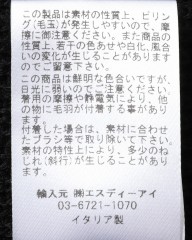 この製品は素材の性質上、ピリン
グ(毛玉)が発生しやすいので、摩
擦に御注意ください。また商品の
性質上、若干の色あせや白化、風合
いの変化が生じることがあります
のでご留意下さい。
この商品は鮮明な色合いですが、
日光に弱いのでご注意ください。
着用の摩擦や静電気により、他の
物に毛羽が付着する事があり
ます。
付着した場合は、素材に合わせ
たブラシ等で取り除いて下さい。
素材の特性上により、多少のね
じれ(斜行)が生じることがありま
す。
輸入元 ㈱エスディーアイ
03-6721-1070
イタリア製